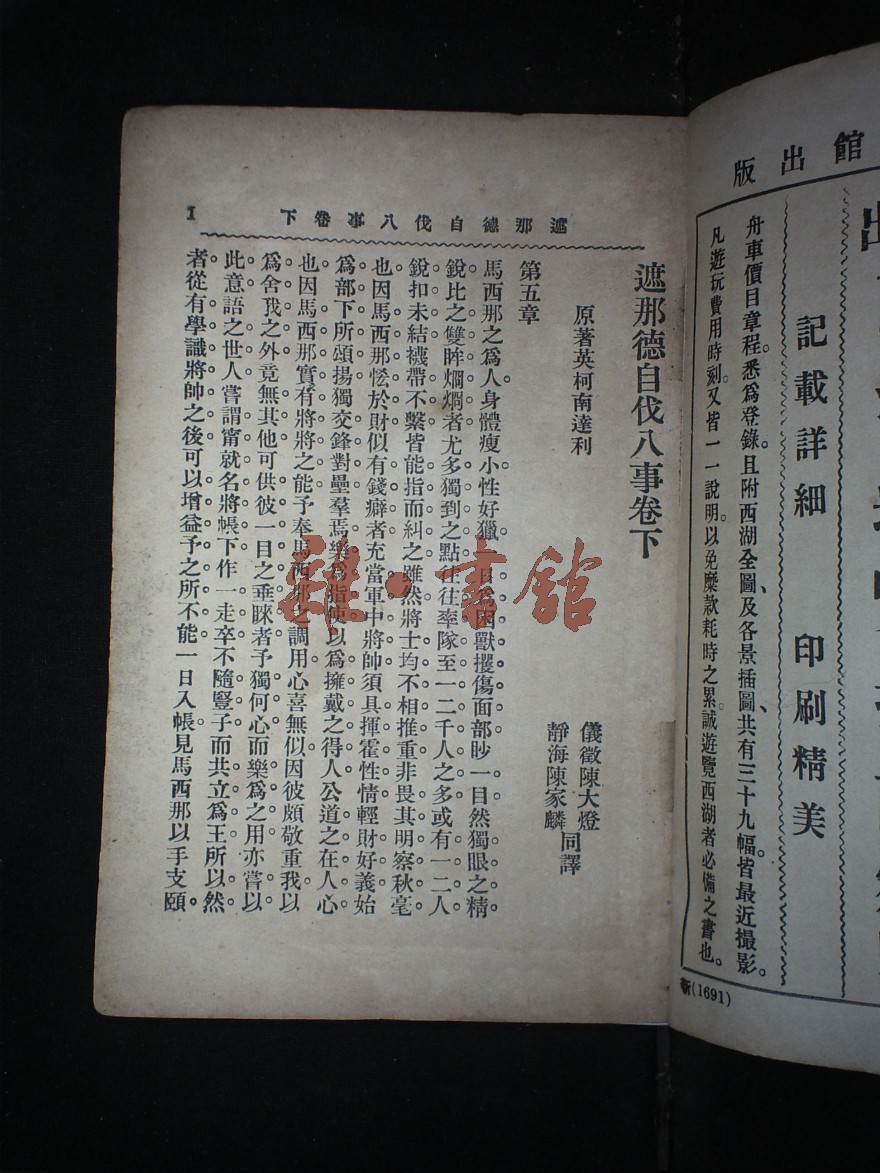 館出版
記載詳細 印刷精美
舟車價目章程。悉爲登錄。且附西湖全圖、及各景插圖、共有三十九幅。皆最近撮影。
凡遊玩費用時刻。又皆一一說明。以免糜款耗時之累。誠遊覽西湖者必備之書也。
新(1691)
遮那德自伐八事卷下
1
遮那德自伐八事卷下
原著英柯南達利
儀徵陳大燈
靜海陳家麟
同譯
第五章
馬西那之爲人。身體瘦小。性好獵。爲困獸攫傷面部。眇一目。然獨眼之精
銳。比之雙眸烱烱者。尤多獨到之點。往往率隊至一二千人之多。或有一二人
銳扣未結。襪帶不繫。皆能指而糾之。雖然。將士均不相推重。非畏其明察秋毫
也。因馬西那恡於財。似有錢癖者。充當軍中將帥。須具揮霍性情。輕財好義。始
爲部下所頌揚。獨交鋒對壘。羣焉樂爲指使。以爲擁戴之得人。公道之在人心
也。因馬西那實有將將之能。予奉馬西那之調用。心喜無似。因彼頗敬重我。以
爲舍我之外。竟無其他可供彼一目之垂睞者。予獨何心而樂爲之用。亦嘗以
此意語之世人。嘗謂甯就名將帳下作一走卒。不隨豎子而共立爲王。所以然
者。從有學識將帥之後。可以增益予之所不能。一日入帳。見馬西那以手支頤。
雜·書館